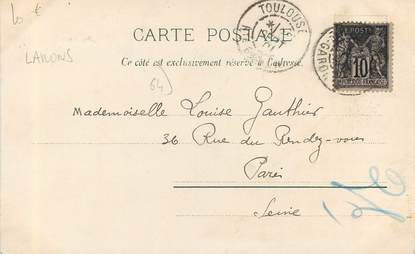 10 €
LARUNS
64
CARTE POSTALE
Ce côté est exclusivement réservé à l'adresse.
TOULOUSE
POSTE
10
GARONNE
Mademoiselle Louise Gauthier
36 Rue du Rendez-vous
Paris
Seine